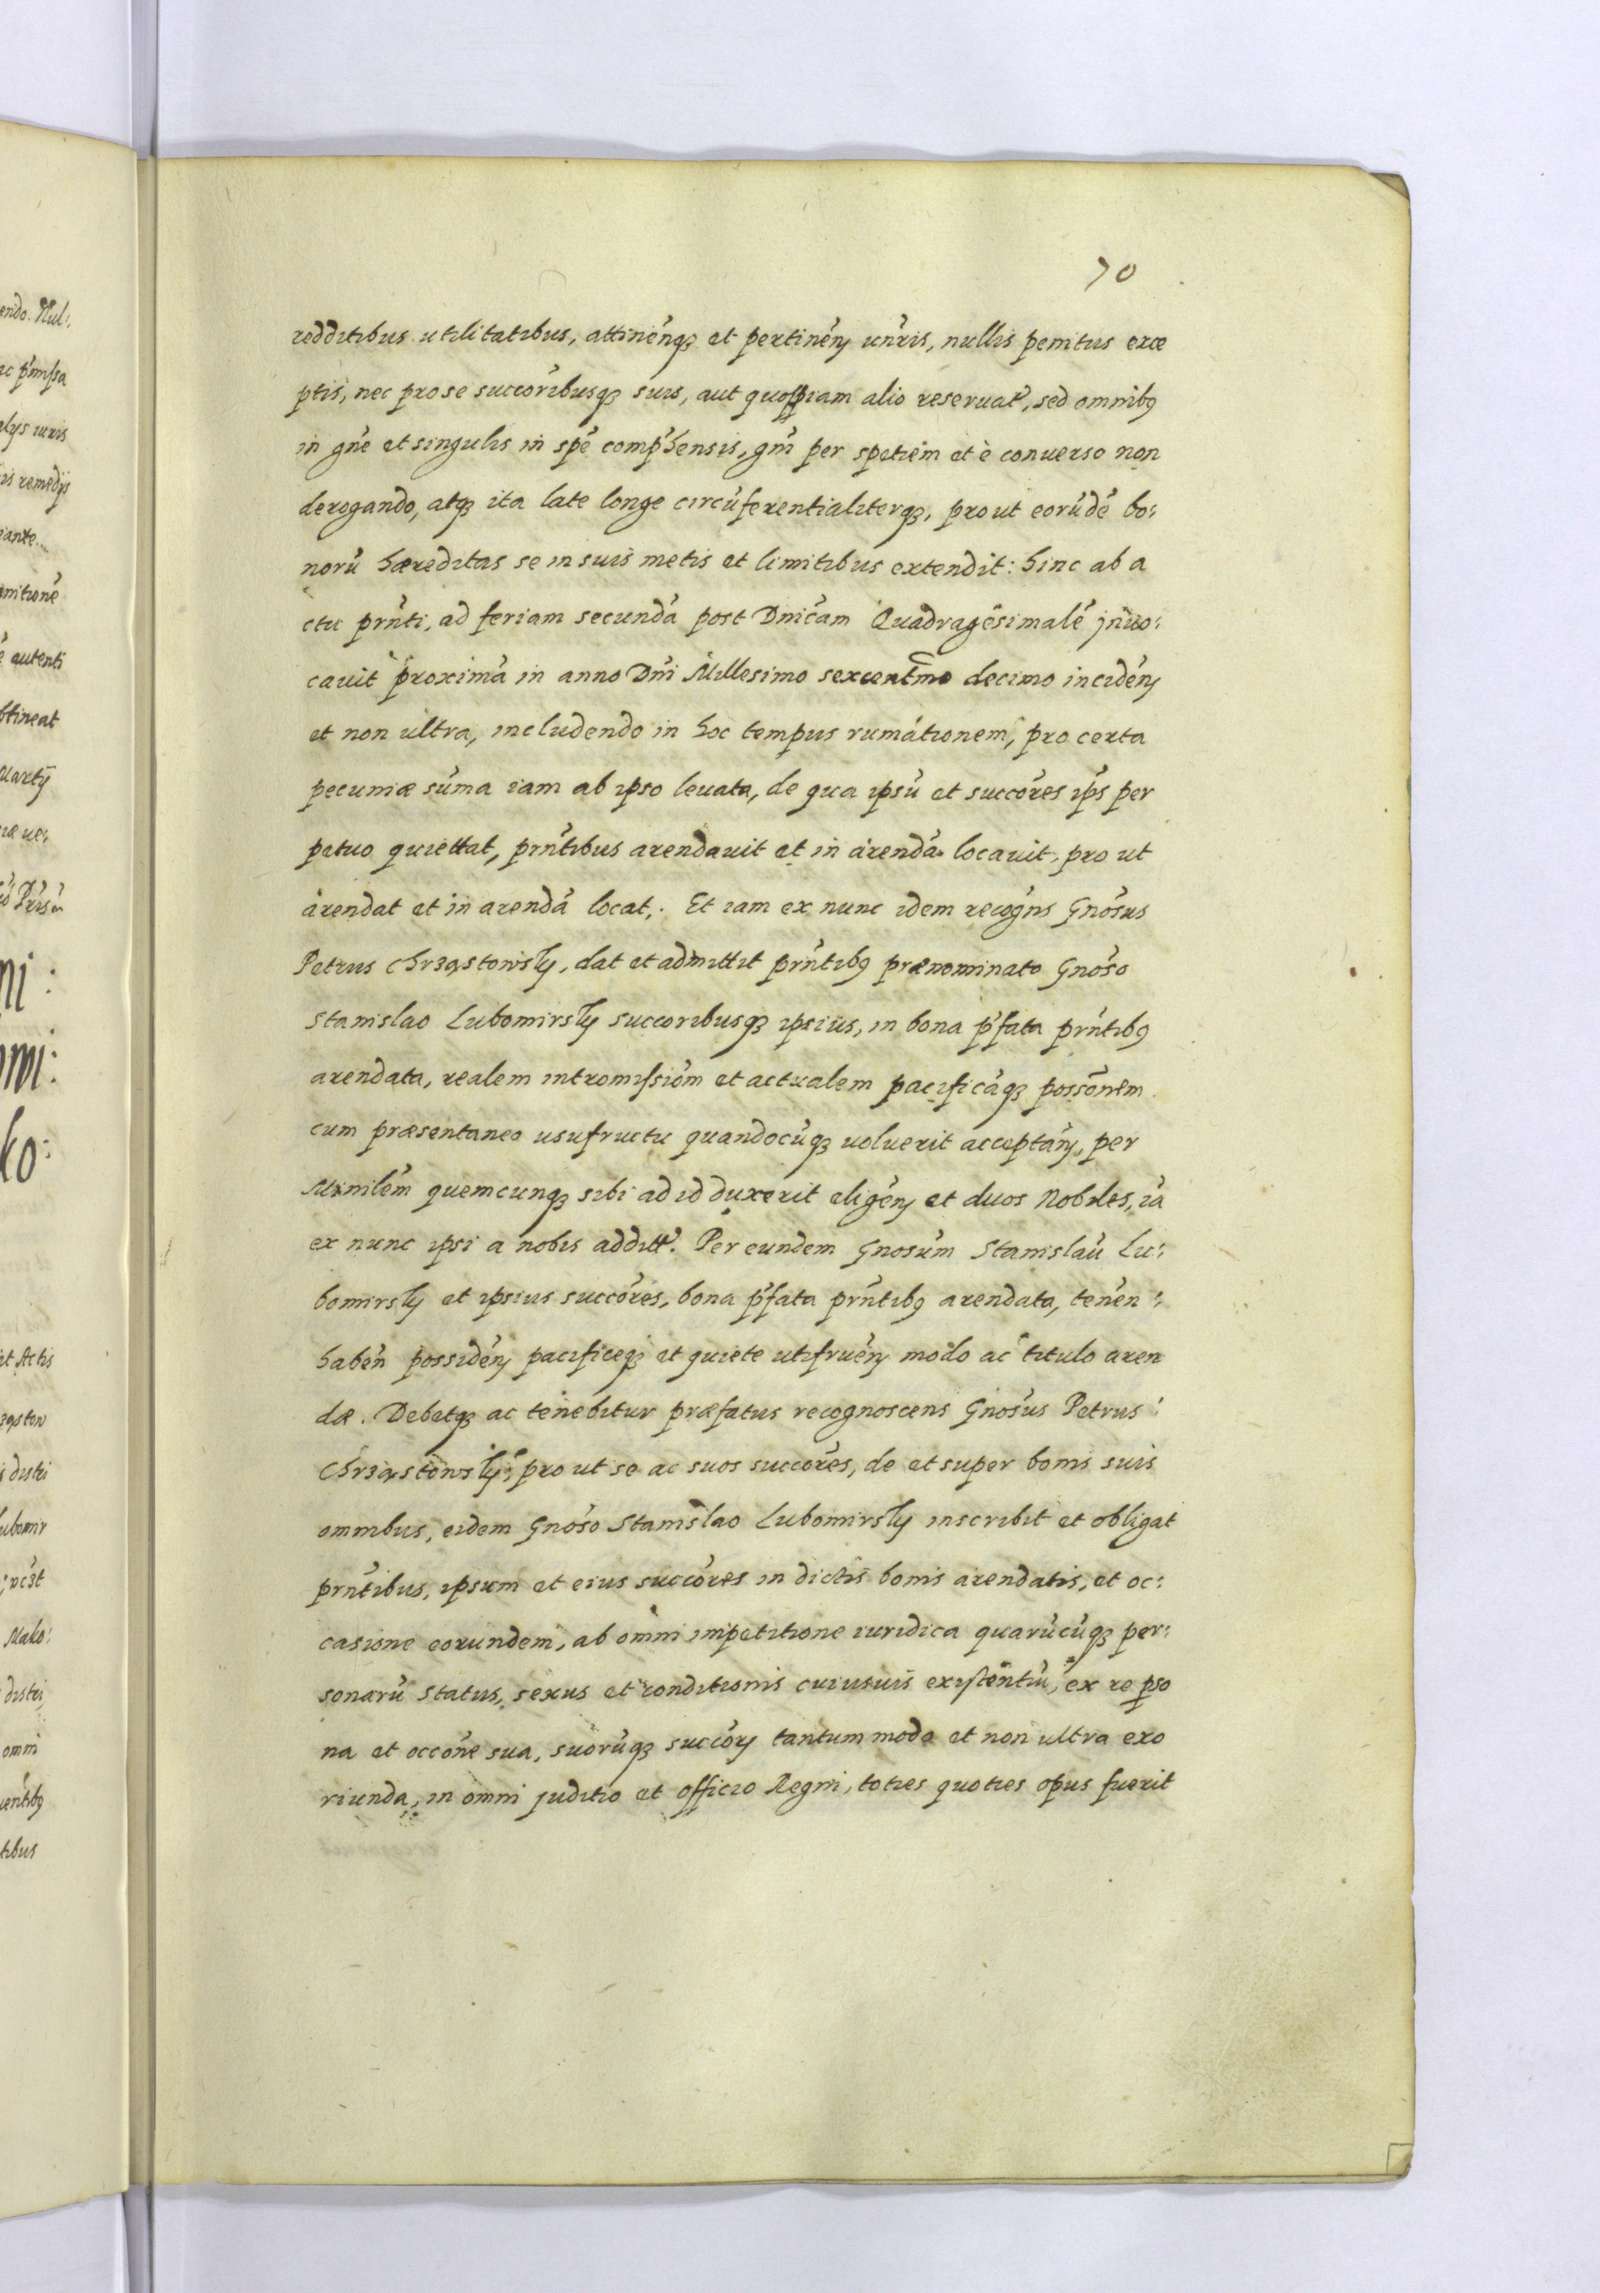 70
redditibus utilitatibus, attinen̄q₃ et pertinen̄ un̄ris, nullis penitus exce
ptis, nec pro se succorībusq₃ suis, aut quopiam alio reseruat̄, sed omnibꝫ
in gn̄e et singulis in spē comp̄hensis, gn̄i per spetiem et è conuerso non
derogando, atq₃ ita late longe circūferentialiterq₃, prout eorūdē bo:
norū hæreditas se in suis metis et limitibus extendit: hinc ab a
ctu prn̄ti, ad feriam secundā post Dnicām Quadragesimalē jnuo:
cauit proximā in anno Dnī Millesimo sexcentm̄o decimo inciden̄
et non ultra, includendo in hoc tempus rumationem, pro certa
pecuniæ sūma iam ab ipso leuata, de qua ipsū et succōres ips̄ per
petuo quiettat, prn̄tibus arendauit et in arendā locauit, pro ut
arendat et in arendā locat. Et iam ex nunc idem recogn̄s Gnōsus
Petrus Chrząstowsky, dat et admittit prn̄tibꝫ prænominato Gnōso
Stanislao Lubomirsky succoribusq₃ ipsius, in bona p̄fata prn̄tibꝫ
arendata, realem intromissiōm et actualem pacificāq₃ possōnem
cum præsentaneo usufructu quandocūq₃ uoluerit acceptan̄, per
Mīnilēm quemcunq₃ sibi ad id duxerit eligen̄ et duos Nobiles, iā
ex nunc ipsi a nobis additt̄. Per eundem Gnosūm Stanislaū Lu:
bomirsky et ipsius succōres, bona p̄fata prn̄tibꝫ arendata, tenēn:
habēn possiden̄ pacificeq₃ et quiete utifruen̄ modo ac titulo aren
dæ. Debetq₃ ac tenebitur præfatus recognoscens Gnōsus Petrus:
Chrząstowsky, pro ut se ac suos succōres, de et super bonis suis
omnibus, eidem Gnōso Stanislao Lubomirsky inscribit et obligat
prn̄tibus, ipsum et eius succōres in dictis bonis arendatis, et oc:
casione eorundem, ab omni impetitione iuridica quarūcūq₃ per:
sonarū status, sexus et conditionis cuiusuis existentiū, ex re p̱so
na et occōne sua, suorūq₃ succōr tantummodo et non ultra exo
riunda, in omni juditio et officio Regni, toties quoties opus fuerit